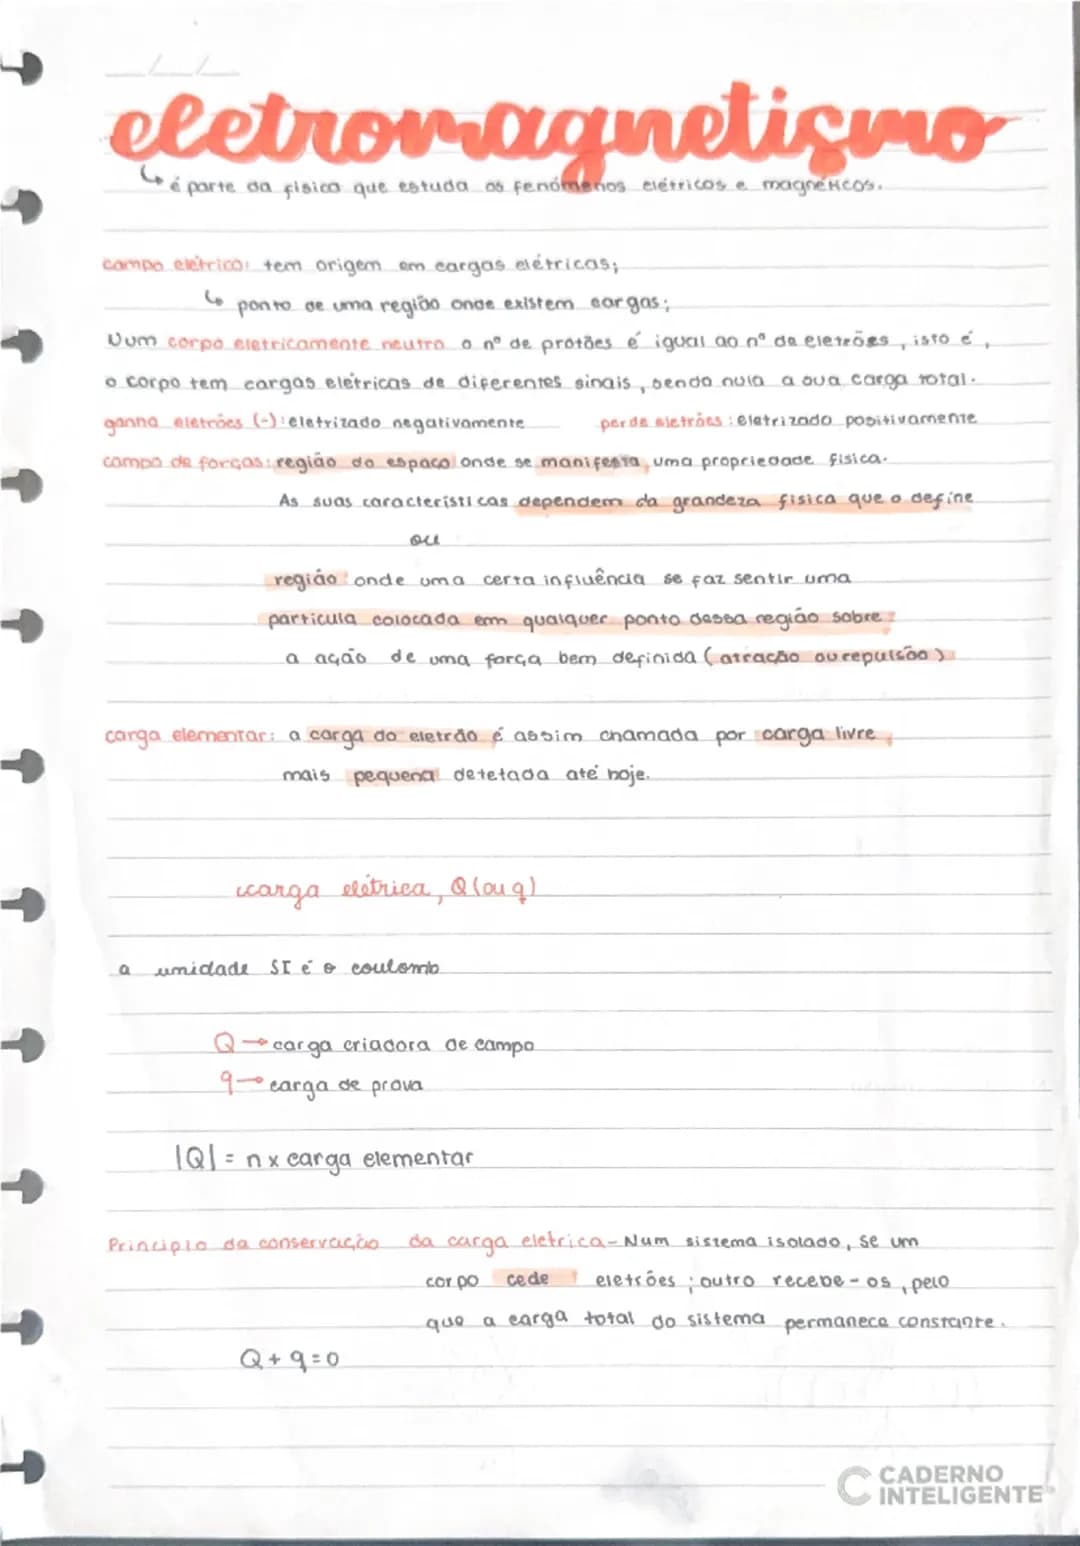 eletromagnetismo
é parte da fisica que estuda os fenómenos elétricos e magnéticos.
campo elétrico: tem origem em cargas elétricas;
ponto de uma região onde existem cargas;
Num corpo eletricamente neutro o nº de protões é igual ao nº de eletrões, isto é,
o corpo tem cargas elétricas de diferentes sinais, sendo nula a sua carga total.
ganha eletrões (-): eletrizado negativamente perde eletrões: eletrizado positivamente
campo de forças: região do espaço onde se manifesta uma propriedade fisica.
As suas caracteristicas dependem da grandeza fisica que o define
ou
região onde uma certa influência se faz sentir uma
particula colocada em qualquer ponto dessa região sobre
a ação de uma força bem definida (atração ou repulsão)
carga elementar: a carga do eletrão é assim chamada por carga livre
mais pequena detetada até hoje.
carga elétrica, Q (ou q)
a unidade SI é o coulomb
Q → carga criadora de campo
q → carga de prova
|Q| = n x carga elementar
Principio da conservação da carga eletrica - Num sistema isolado, se um
corpo cede eletrões; outro recebe-os, pelo
que a carga total do sistema permanece constante.
Q + q = 0
CADERNO
INTELIGENTE